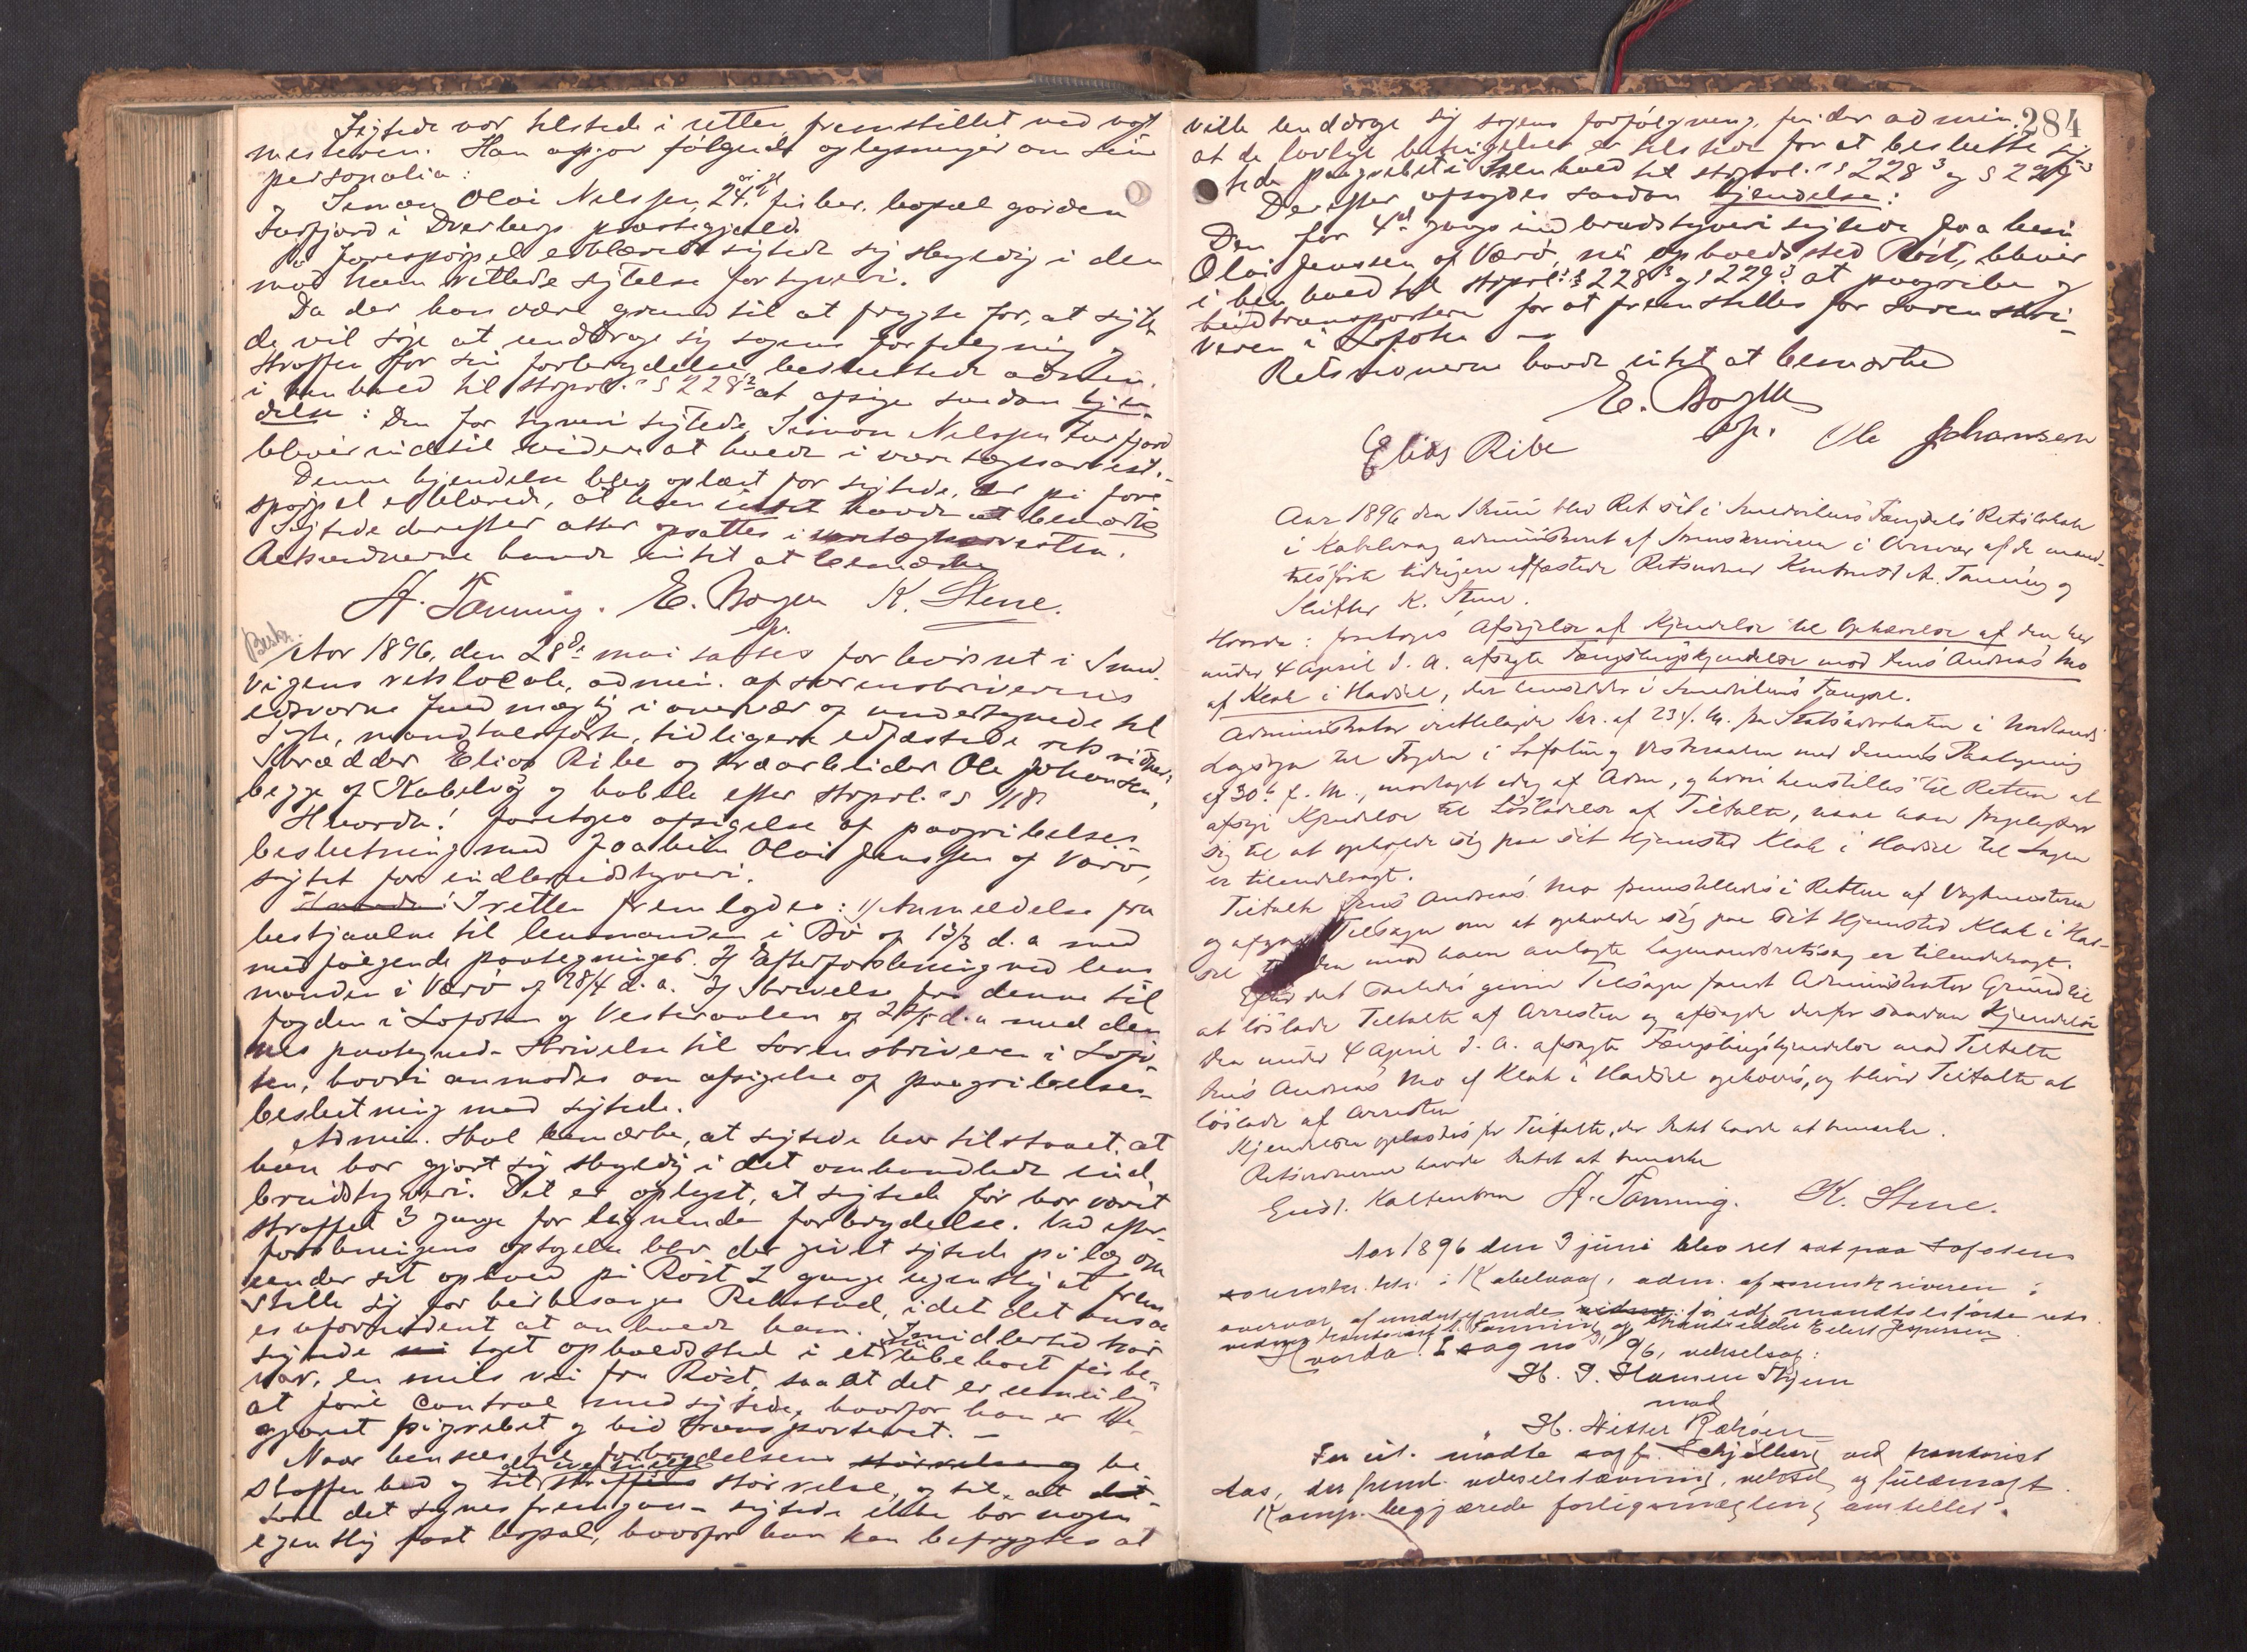 Sigtede var tilstede i retten fremstillet ved vagt
mesteren. Han opgav følgende oplysninger om sine
personalia:
Simon Olai Nilssen, 24 år gl. fisker, bopæl gården
Forfjord i Dverbergs præstegjæld.
På forespørgsel erklærede sigtede sig skyldig i den
mod ham rettede sigtelse for tyveri.
Da der kan være grund til at frygte for, at sigte
de vil søge at unddrage sig sagens forfølgning og
straffen for sin forbrydelse, besluttede admin.
i henhold til strprl.s § 228² at afsige saadan kjen
delse: Den for tyveri sigtede, Simon Nilssen Forfjord
bliver indtil videre at holde i varetægtsarrest.
Denne kjendelse blev oplæst for sigtede, der på fore
spørgsel erklærede, at han intet havde at bemærke
Sigtede derefter atter opsattes i varetægtsarresten.
Retsvidnerne havde intet at bemærke
A. Tanning. E. Bogen K. Stene.
fr.
Beskr.
Aar 1896, den 28de mai sattes forhørsret i Smed
vigens retslocale, admin. af sorenskriverens
edsvorne fuldmægtig i overvær af undertegnede til
sagte, mandtalsførte, tidligere edfæstede retsvidner,
Skrædder Elias Ribe og træarbeider Ole Johansen,
begge af Kabelvåg og habile efter strprl.s § 118
Hvorda! foretoges afsigelse af paagribelses
beslutning mod Joakim Olai Jenssen af Værø,
sigtet for indbrudstyveri.
Hvorda! I retten fremlagdes: 1) Anmeldelse fra
bestjaalne til lensmanden i Bø af 13/3 d. a. med
medfølgende paategninger. 2) Efterforskning ved lens
manden i Værø af 28/4 d. a. 3) Skrivelse fra denne til
fogden i Lofoten og Vesteraalen af 2/5 d. a med den
nes paategned. skrivelse til sorenskriveren i Lofo
ten, hvori anmodes om afsigelse af paagribelses-
beslutning mod sigtede.
Admin. skal bemærke, at sigtede har tilstaaet, at
han har gjort sig skyldig i det omhandlede ind
brudstyveri. Det er oplyst, at sigtede før har været
straffet 3 gange for lignende forbrydelse. Ved efter-
forskningens optagelse blev der givet sigtede pålæg om
under sit ophold på Røst 2 gange ugentlig at frem
stille sig for Rekstad, idet det ansaa
es ufornødent at anholde ham. Imidlertid har
sigtede taget opholdssted i et ubeboet fiske
vær, en mils vei fra Røst, saa at det er umulig
at føre control med sigtede, hvorfor han er be
gjæret pågrebet og hid transporteret. –
Naar henses til forbrydelsens be
skaffenhed og til straffens størrelse, og til, at
som det synes fremgaa – sigtede ikke har nogen
egentlig fast bopæl, hvorfor han kan befrygtes at
284
ville unddrage sig sagens forfølgning, finder admin.
at de lovlige betingelser er tilstede for at beslutte sig
tede paagrebet i henhold til strprl.s § 228³ og § 229³
Derefter afsagdes saadan kjendelse:
Den for 4de gangs indbrudstyveri sigtede Joakim
Olai Jenssen af Værø, nu opholdssted Røst, bliver
i henhold til strprl.s § 228³ og § 229³ at paagribe og
hidtransportere for at fremstilles for sorenskri-
veren i Lofoten –
Retsvidnerne havde intet at bemærke
E. Bogen
fr.
Elias Ribe Ole Johansen
Aar 1896 den 1 Juni blev Ret sat i Smedvikens Fængsels Retslokale
i Kabelvaag administreret af Sorenskriveren i Overvær af de mand-
talsførte tidligere edfæstede Retsvidner Kontorist A. Tanning og
Skifter K. Stene.
Hvorda: foretoges Afsigelse af Kjendelse til Ophævelse af den her
under 4 April d. A. afsagte Fængslingskjendelse mod Jens Andreas Mo
af Klak i Hadsel, der hensidder i Smedvikens Fængsel.
Administrator irettelagde Skr. af 23 f. M. fra Statsadvokaten i Nordlands
Lagsogn til Fogden i Lofoten og Vesteraalen med dennes Paategning
af 30. f. M., modtaget idag af Adm., hvori henstilles til Retten at
afsige Kjendelse til Løsladelse af Tiltalte, naar han forpligter
sig til at opholde sig paa sit Hjemsted Klak i Hadsel til Sagen
er tilendebragt.
Tiltalte Jens Andreas Mo fremstilledes i Retten af Vagtmesteren
og afgav Tilsagn om at opholde sig paa sit Hjemsted Klak i Had-
sel til den mod ham anlagte Lagmandsretssag er tilendebragt.
Efter det saaledes givne Tilsagn fandt Administrator Grund til
at løslade Tiltalte af Arresten og afsagde derfor saadan Kjendelse
Den under 4 April d. A. afsagte Fængslingskjendelse mod Tiltalte
Jens Andreas Mo af Klak i Hadsel ophæves, og bliver Tiltalte at
løslade af Arresten
Kjendelsen oplæstes for Tiltalte, der Intet havde at bemærke.
Retsvidnerne havde Intet at bemærke
A. Tanning. K. Stene.
Aar 1896 den 3 juni blev ret sat paa Lofotens
sorenskr. ktr. i Kabelvaag, adm. af sorenskriveren i
overvær af undertegnede to edf. mandtalsførte rets
vidner kontorist A. Tanning og Eilert Jespersen
Hvorda! I sag no 9/96, vekselsag:
H. P. Hansen
mod
H.
For cit. mødte sagf. ved kontorist
Aas, der freml. vekselstævning, veksel og fuldmagt.
Komp. begjærede forligsmægling anstillet.